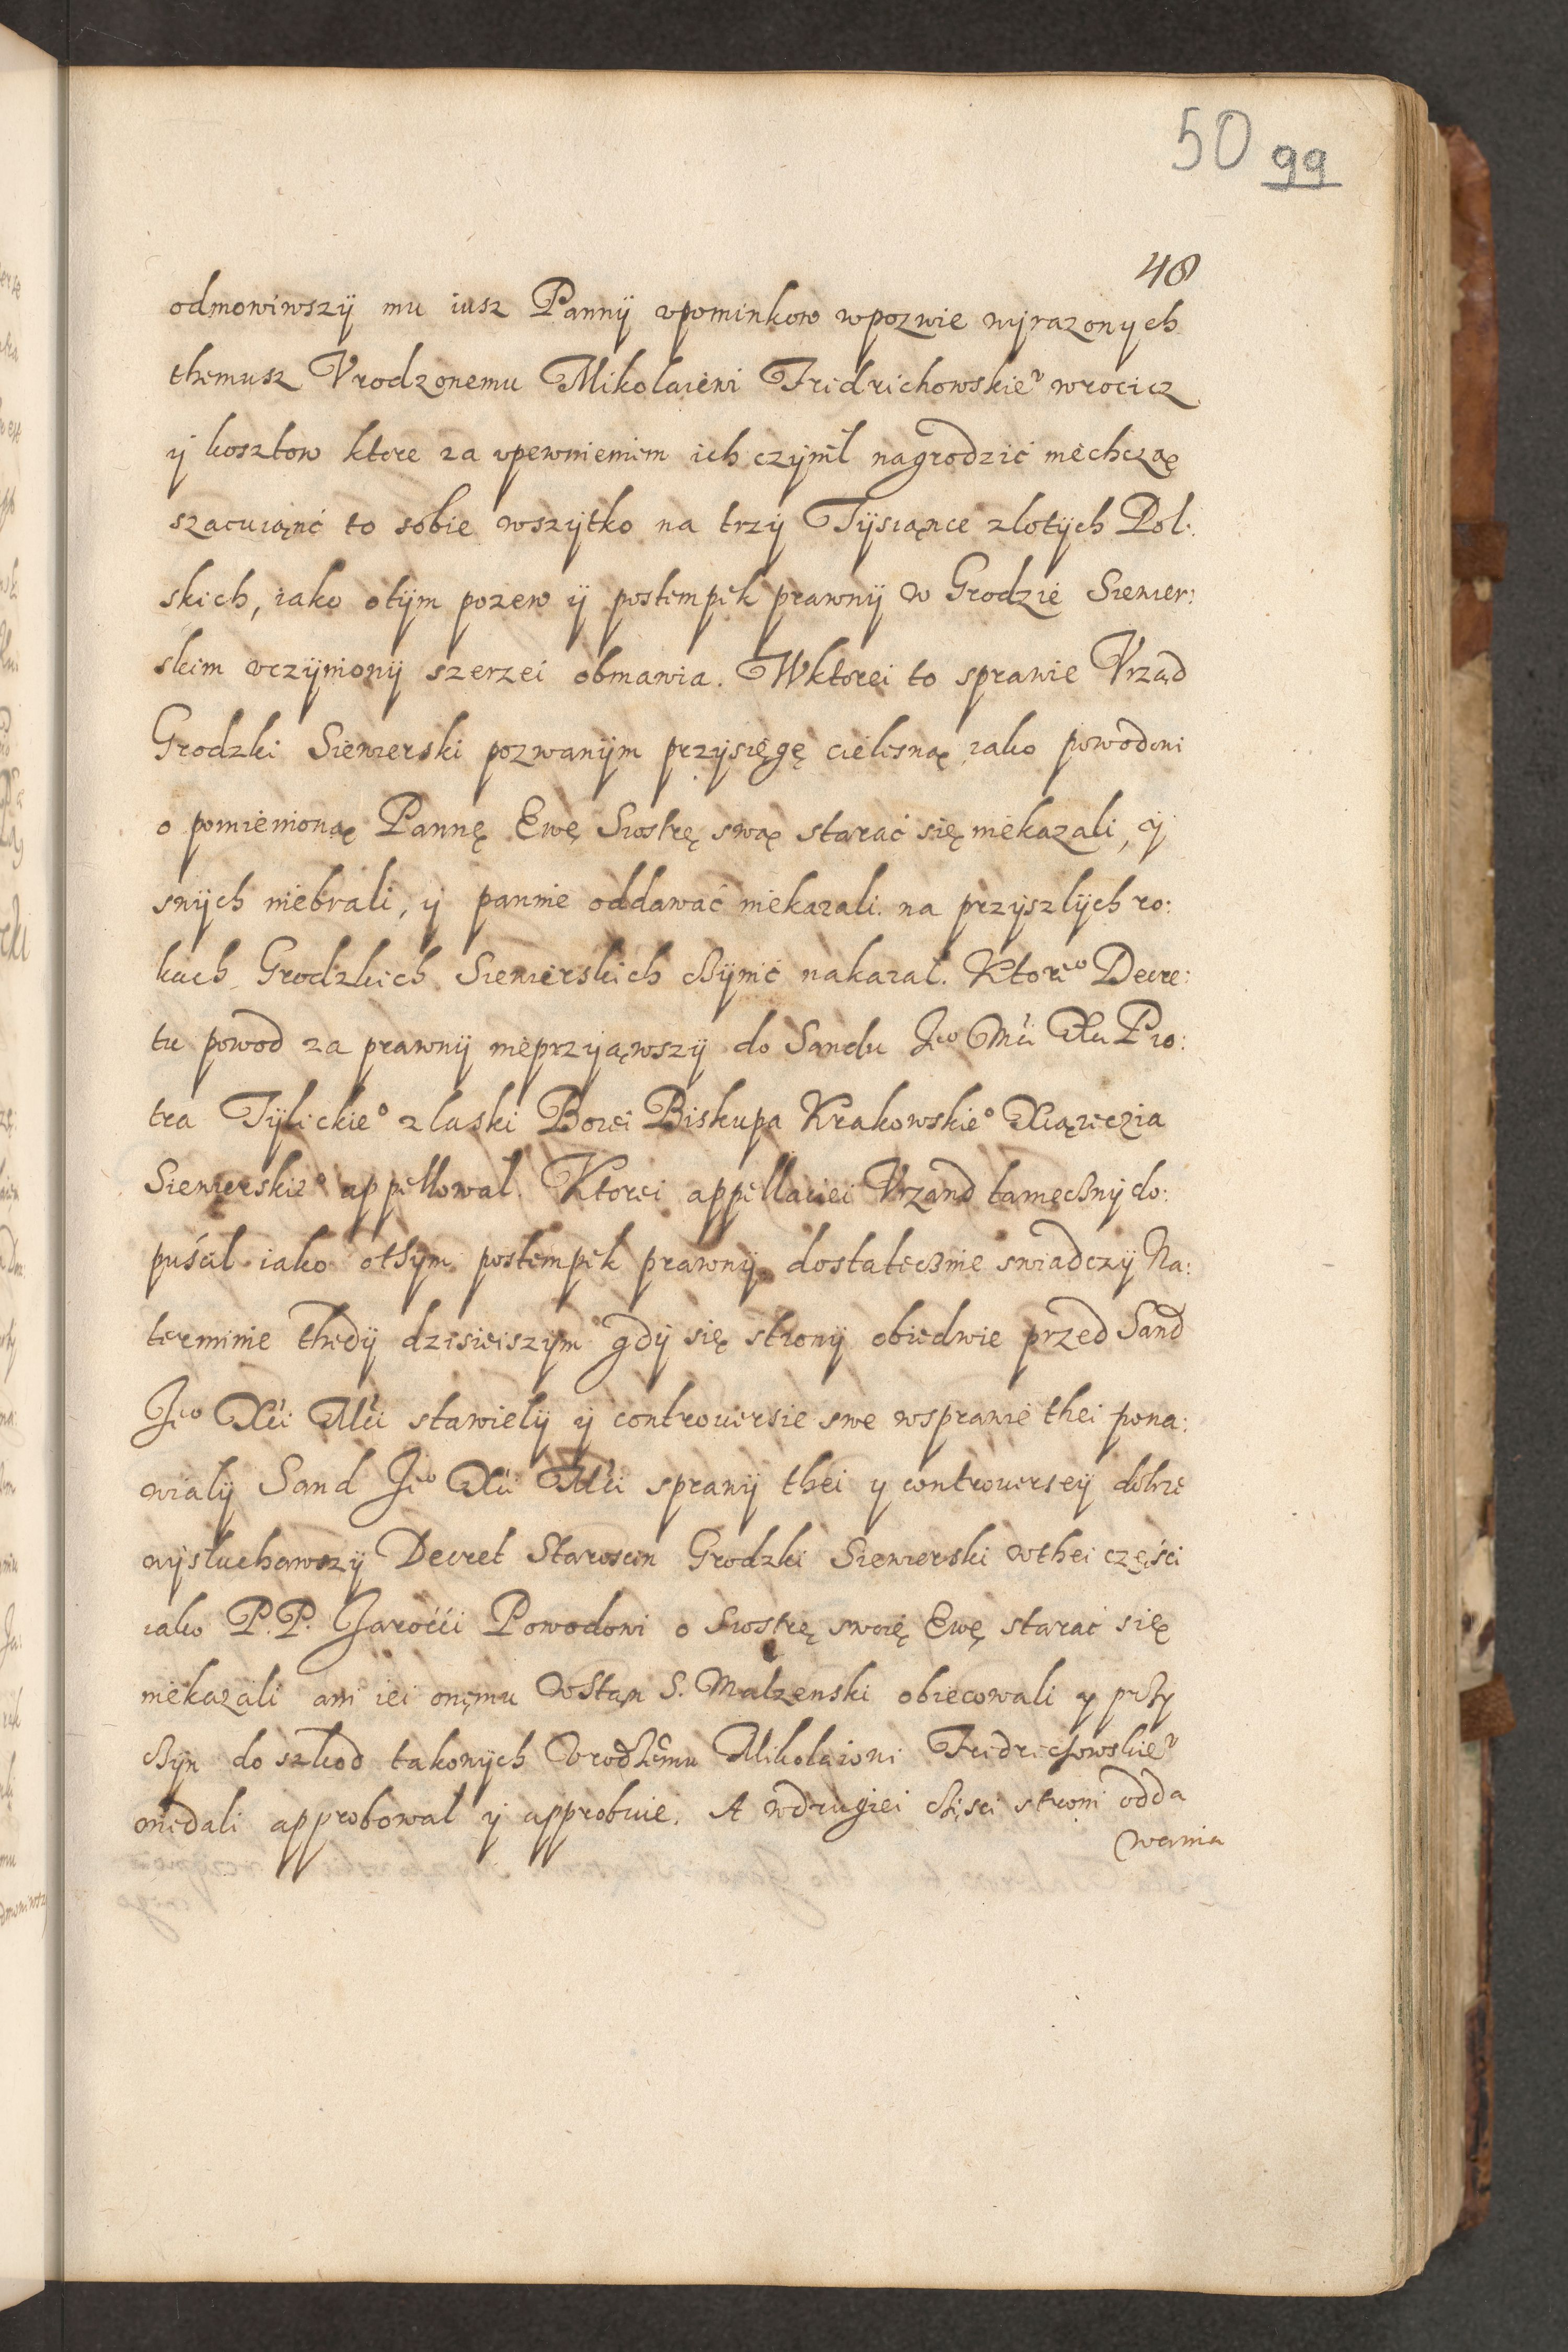 50 99
48
odmowiwszÿ mu iusz Pannÿ vpominkow wpozwie wÿrazonych
themusz Vrodzonemu Mikolaiewi Fridrichowskieº wrocicz
ÿ kosztow ktore za vpewnieniem ich czÿnil nagrodzić niechcząę
szacuiąnć to sobie wszÿtko na trzÿ Tÿsiąnce zlotÿch Pol:
skich, iako otÿm pozew ÿ postempek prawnÿ w Grodzie Siewier:
skim vczÿnionÿ szerzei obmawia. Wktorei to sprawie Vrząd
Grodzki Siewierski pozwanÿm przÿsięgę cielesnąę iako powodowi
o pomienionąę Pannę Ewę Siostrę swąę starać się niekazali, ÿ
snÿch niebrali, ÿ pannie oddawać niekazali. na przÿszlÿch ro:
kach Grodzkich Siewierskich czÿnić nakazal. Ktoreº Decre:
tu powod za prawnÿ nieprzÿiąwszÿ do Sandu Jeº Mći Xa Pio:
tra Tÿlickieº z laski Bozei Biskupa Krakowskieº Xiązęczia
Siewierskieº appellowal. Ktorei appellaciei Vrzand tamecznÿ do:
puścil iako othÿm postempek prawnÿ dostatecznie swiadczÿ Na:
terminie thedÿ dzisieiszÿm gdÿ się stronÿ obiedwie przed Sand
Jeº Xći Mći stawielÿ ÿ controuersie swe wsprawie thei pona:
wialÿ Sand Jeº Xći Mći sprawÿ thei y controuersÿ dobrze
wÿsluchawszÿ Decret Staroscin Grodzki Siewierski wthei części
iako P.P. Jaroććí Powodowi o Siostrę swoię Ewę starać się
niekazali ani iei onemu wstan S. Malzenski obiecowali y przÿ
czÿn do szkod takowÿch Vrodzemu Mikolaiowi Fridrichowskieº
niedali approbowal ÿ approbuie. A wdrugiei części stroni odda
wania